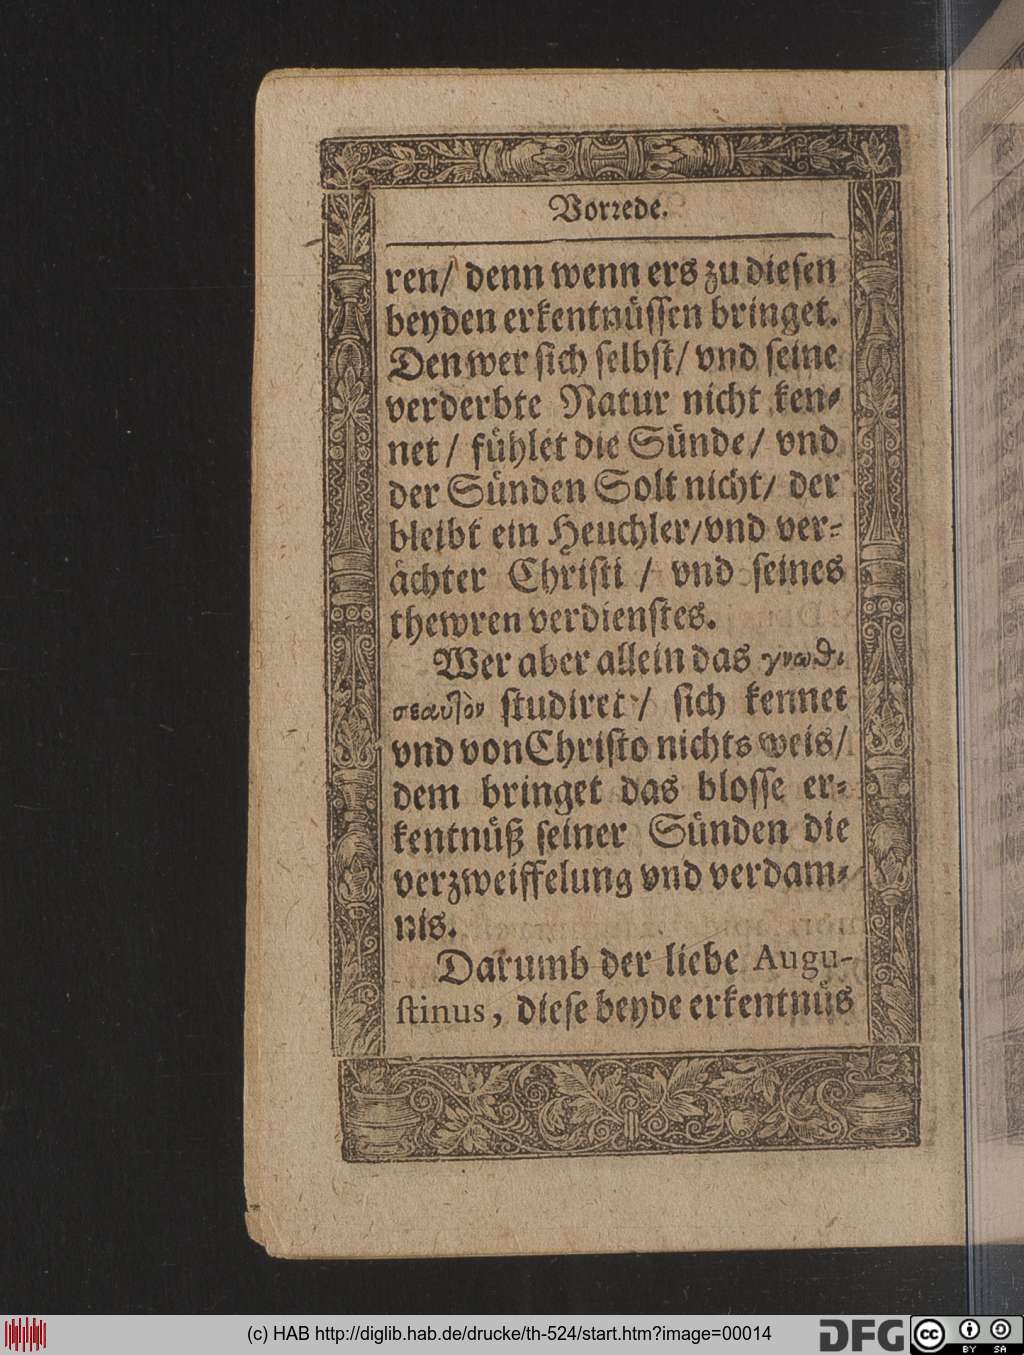 Vorrede.
ren/ denn wenn ers zu diesen
beyden erkentnüssen bringet.
Den wer sich selbst/ vnd seine
verderbte Natur nicht ken-
net/ fühlet die Sünde/ vnd
der Sünden Solt nicht/ der
bleibt ein Heuchler/vnd ver-
ächter Christi / vnd seines
thewren verdienstes.
Wer aber allein das γνωθι
σεαυτὸν studiret / sich kennet
vnd von Christo nichts weis/
dem bringet das blosse er-
kentnüß seiner Sünden die
verzweiffelung vnd verdam-
nis.
Darumb der liebe Augu-
stinus, diese beyde erkentnüs
(c) HAB http://diglib.hab.de/drucke/th-524/start.htm?image=00014
DFG
cc BY SA